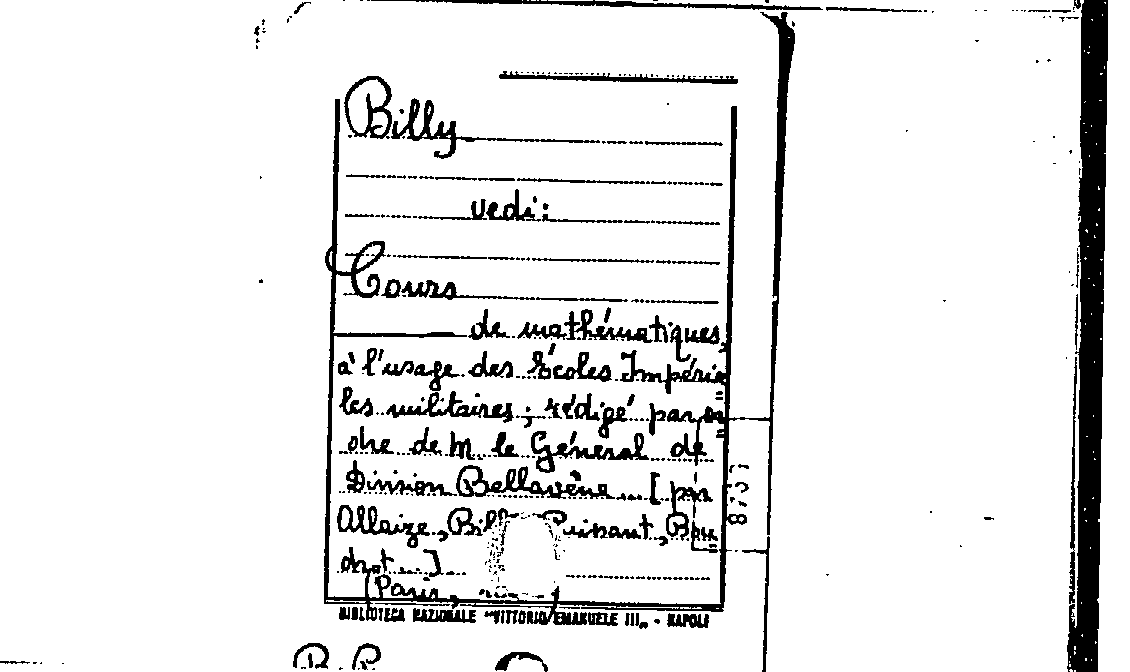 Billy
vedi:
Cours
de mathématiques,
à l'usage des Écoles Impéria=
les militaires; rédigé par or=
dre de M. le Général de
Division Bellavène... [par
Allaize, Billy, Puissant, Bou=
drot...]
(Paris,
BIBLIOTECA NAZIONALE "VITTORIO EMANUELE III„ - NAPOLI